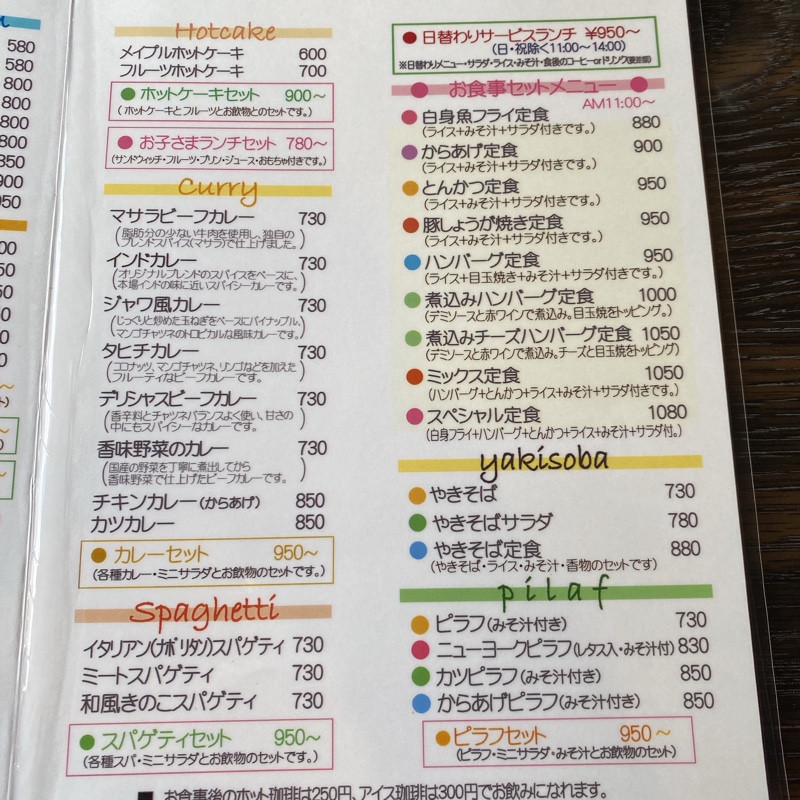 580
580
800
800
800
800
850
900
950
Hotcake
メイプルホットケーキ 600
フルーツホットケーキ 700
●ホットケーキセット 900～
(ホットケーキとフルーツとお飲物とのセットです。)
●お子さまランチセット 780～
(サンドウィッチ・フルーツ・プリン・ジュース・おもちゃ付きです。)
Curry
マサラビーフカレー 730
(脂肪分の少ない牛肉を使用し、独自の
ブレンドスパイス(マサラ)で仕上げました。)
インドカレー 730
(オリジナルブレンドのスパイスをベースに、
本場インドの味に近いスパイシーカレーです。)
ジャワ風カレー 730
(じっくりと炒めた玉ねぎをベースにパイナップル、
マンゴチャツネのトロピカルな風味カレーです。)
タヒチカレー 730
(ココナッツ、マンゴチャツネ、リンゴなどを加えた
フルーティなビーフカレーです。)
デリシャスビーフカレー 730
(香辛料とチャツネバランスよく使い、甘さの
中にもスパイシーなカレーです。)
香味野菜のカレー 730
(国産の野菜を丁寧に煮出してから
香味野菜で仕上げたビーフカレーです。)
チキンカレー(からあげ) 850
カツカレー 850
●カレーセット 950～
(各種カレー・ミニサラダとお飲物のセットです。)
Spaghetti
イタリアン(ナポリタン)スパゲティ 730
ミートスパゲティ 730
和風きのこスパゲティ 730
●スパゲティセット 950～
(各種スパ・ミニサラダとお飲物のセットです。)
●日替わりサービスランチ ¥950～
(日・祝除く11:00～14:00)
※日替わりメニュー・サラダ・ライス・みそ汁・食後のコーヒーorドリンク
●お食事セットメニュー●
AM11:00～
●白身魚フライ定食 880
(ライス+みそ汁+サラダ付きです。)
●からあげ定食 900
(ライス+みそ汁+サラダ付きです。)
●とんかつ定食 950
(ライス+みそ汁+サラダ付きです。)
●豚しょうが焼き定食 950
(ライス+みそ汁+サラダ付きです。)
●ハンバーグ定食 950
(ライス+目玉焼き+みそ汁+サラダ付きです。)
●煮込みハンバーグ定食 1000
(デミソースと赤ワインで煮込み。目玉焼をトッピング。)
●煮込みチーズハンバーグ定食 1050
(デミソースと赤ワインで煮込み。チーズと目玉焼をトッピング)
●ミックス定食 1050
(ハンバーグ+とんかつ+ライス+みそ汁+サラダ付きです。)
●スペシャル定食 1080
(白身フライ+ハンバーグ+とんかつ+ライス+みそ汁+サラダ付。)
yakisoba
●やきそば 730
●やきそばサラダ 780
●やきそば定食 880
(やきそば・ライス・みそ汁・香物のセットです)
pilaf
●ピラフ(みそ汁付き) 730
●ニューヨークピラフ(レタス入・みそ汁付) 830
●カツピラフ(みそ汁付き) 850
●からあげピラフ(みそ汁付き) 850
●ピラフセット 950～
(ピラフ・ミニサラダ・みそ汁とお飲物のセット)
■お食事後のホット珈琲は250円、アイス珈琲は300円でお飲みになれます。